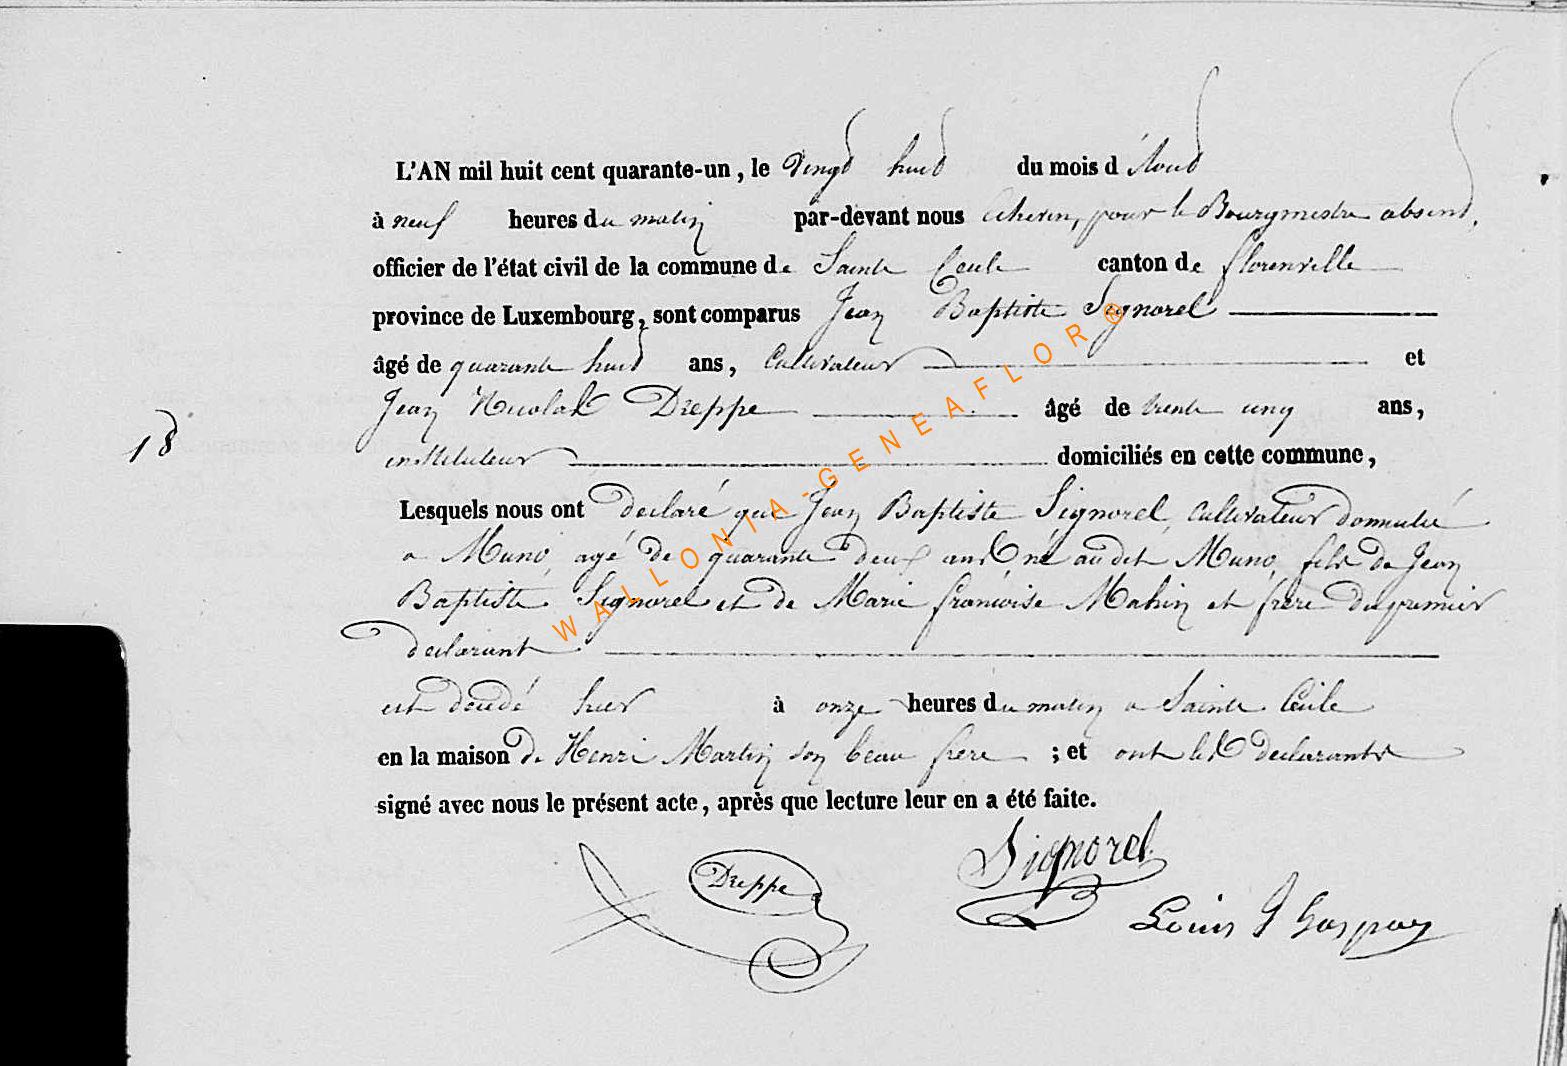 L'AN mil huit cent quarante-un, le vingt huit du mois d'Aout
à neuf heures du matin par-devant nous Echevin, pour le Bourgmestre absent,
officier de l'état civil de la commune de Sainte Cecile canton de florenville
province de Luxembourg, sont comparus Jean Baptiste Signorel
âgé de quarante huit ans, Cultivateur et
Jean Nicolas Dreppe âgé de trente cinq ans,
18
instituteur domiciliés en cette commune,
Lesquels nous ont declaré que Jean Baptiste Signorel, Cultivateur domicilié
a Muno, agé de quarante deux ans né audit Muno, fils de Jean
Baptiste Signorel et de Marie françoise Mahin et frère du premier
declarant
est décédé hier à onze heures du matin a Sainte Cécile
en la maison de Henri Martin son beau frere ; et ont les declarants
signé avec nous le présent acte, après que lecture leur en a été faite.
Dreppe
Signorel
Louis J
WALLONIA-GENEAFLOR®